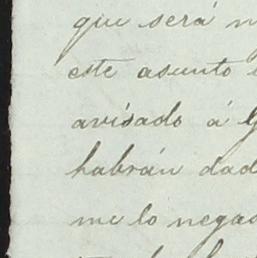 que será
este asunto
avisado á
habrán dad
me lo negad